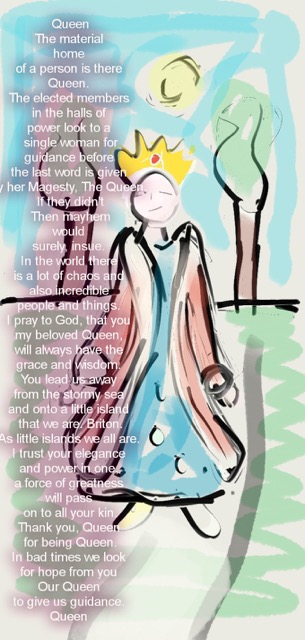 Queen
The material
home
of a person is there
Queen.
The elected members
in the halls of
power look to a
single woman for
guidance before
the last word is given,
y her Magesty, The Queen.
If they didn't
Then mayhem
would
surely, insue.
In the world there
is a lot of chaos and
also incredible
people and things.
I pray to God, that you
my beloved Queen,
will always have the
grace and wisdom.
You lead us away
from the stormy sea
and onto a little island
that we are, Briton.
As little islands we all are.
I trust your elegance
and power in one,
a force of greatness
will pass
on to all your kin.
Thank you, Queen
for being Queen.
In bad times we look
for hope from you
Our Queen
to give us guidance.
Queen